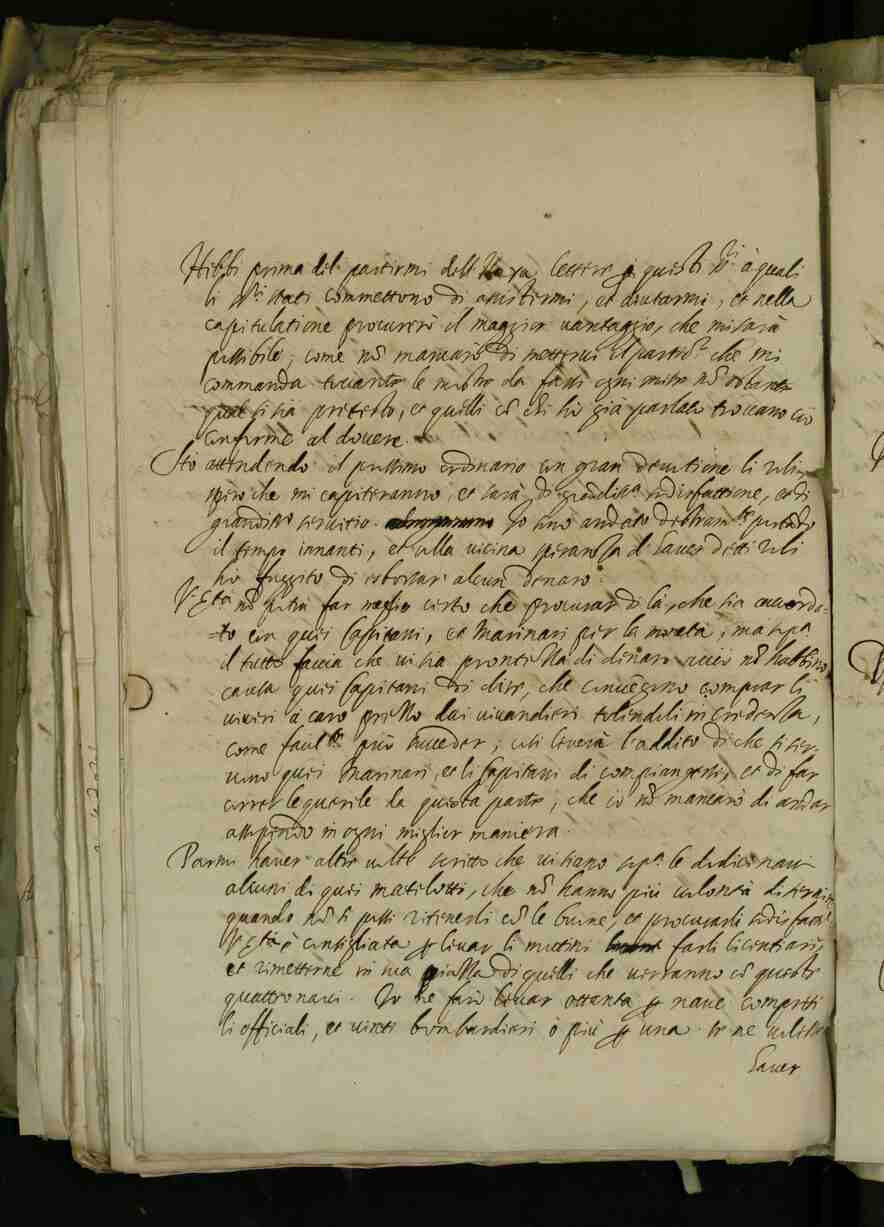 Hebbi prima del partirmi dell'Haya lettere p questi SSri à quali
li SSri stati commettono di assistermi, et aiutarmi, et nella
capitulatione procurerò il maggior vantaggio, che mi sarà
possibile; come nō mancarò di metterui il partito che mi
commanda leuar le mostre da farsi ogni mese nō ostante
qual si sia pretesto, et quelli cō chi hò già parlato trouano ciò
conforme al douere.
Stò attendendo il prossimo ordinario con gran deuotione li
spero che mi capiteranno, et sarà di grandissa sodisfattione, et di
grandisso seruitio. Io sono andato destramte portādo
il tempo innanti, et colla vicina speranza d'hauer detti
hò fuggito di esborsar alcun denaro.
V Ecca nō potrà far meglio certo che procurar di là, che sia accorda=
=to con quei Capitani, et Marinari per la moneta, ma sopra
il tutto faccia che vi sia prontezza di denaro acciò nō habbino
causa quei Capitani di dire, che conuēgono comprar li
viueri à caro prezzo dai viuandieri tolendoli in credenza,
come facilte può succeder; così leuerà l'addito di che si ser=
uono quei Marinari, et li Capitani di compiangersi, et di far
correr le querele da questa parte, che io nō mancarò di andar
assopendo in ogni miglior maniera.
Parmi hauer altre volte scritto che vi siano sopra le dodici naui
alcuni di quei matelotti, che nō hanno più volontà di seruire
quando nō si possi ritenerli cō le buone, et procurarli sodisfare
V Ecca è consigliata p leuar li mutini farli licentiare,
et rimetterne in sua piazza di quelli che verranno cō queste
quattro naui. Io ne farò leuar ottanta p naue compresi
li officiali, et vinti bombardieri ò più p una. Se ne
hauer